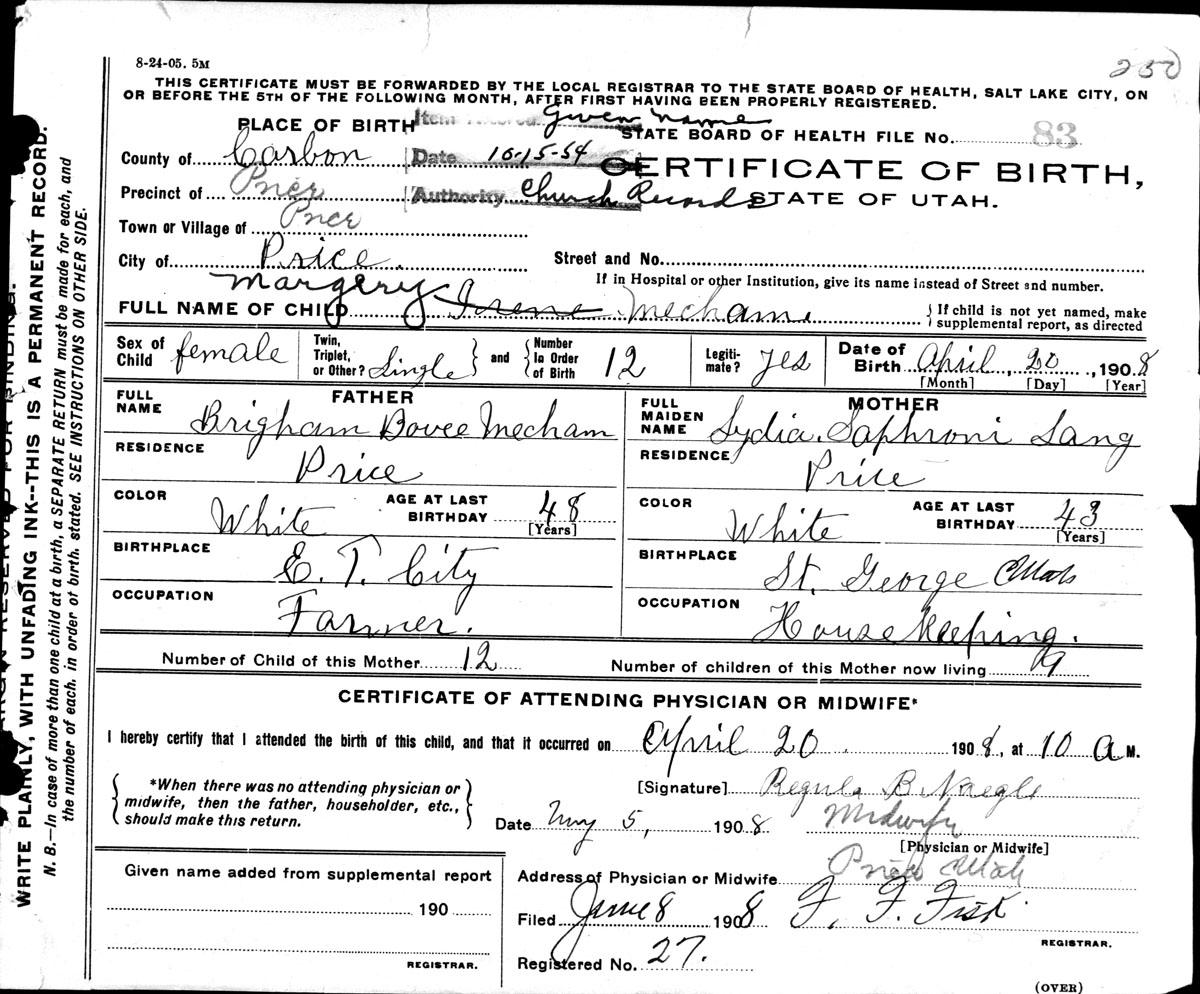 8-24-05. 5M
250
THIS CERTIFICATE MUST BE FORWARDED BY THE LOCAL REGISTRAR TO THE STATE BOARD OF HEALTH, SALT LAKE CITY, ON
OR BEFORE THE 5TH OF THE FOLLOWING MONTH, AFTER FIRST HAVING BEEN PROPERLY REGISTERED.
PLACE OF BIRTH Item Given name
STATE BOARD OF HEALTH FILE No. 83
County of Carbon Date 10-15-54
CERTIFICATE OF BIRTH,
Precinct of Price Authority Church Records
STATE OF UTAH.
Town or Village of Price
City of Price. Street and No.
If in Hospital or other Institution, give its name instead of Street and number.
Margery
FULL NAME OF CHILD Irene Mecham. {If child is not yet named, make
supplemental report, as directed
Sex of Child female Twin, Triplet, or Other? Single } and { Number In Order of Birth 12 Legiti-mate? Yes Date of Birth April, 20, 1908
[Month] [Day] [Year]
FATHER
FULL NAME Brigham Bovee Mecham
RESIDENCE Price
COLOR White AGE AT LAST BIRTHDAY 48 [Years]
BIRTHPLACE E. T. City
OCCUPATION Farmer.
MOTHER
FULL MAIDEN NAME Lydia Saphroni Lang
RESIDENCE Price
COLOR White AGE AT LAST BIRTHDAY 43 [Years]
BIRTHPLACE St. George Utah
OCCUPATION House Keeping.
Number of Child of this Mother 12 Number of children of this Mother now living 9
CERTIFICATE OF ATTENDING PHYSICIAN OR MIDWIFE*
I hereby certify that I attended the birth of this child, and that it occurred on April 20. 1908, at 10 A M.
{ *When there was no attending physician or
midwife, then the father, householder, etc.,
should make this return. }
[Signature] Regula B. Naegle
Date May 5, 1908 Midwife
[Physician or Midwife]
Address of Physician or Midwife Price Utah
Given name added from supplemental report
190
REGISTRAR.
Filed June 8 1908 F. F. Fisk
REGISTRAR.
Registered No. 27.
(OVER)
RESERVED FOR BINDING.
WRITE PLAINLY, WITH UNFADING INK--THIS IS A PERMANENT RECORD.
N. B.—In case of more than one child at a birth, a SEPARATE RETURN must be made for each, and
the number of each. in order of birth. stated. SEE INSTRUCTIONS ON OTHER SIDE.